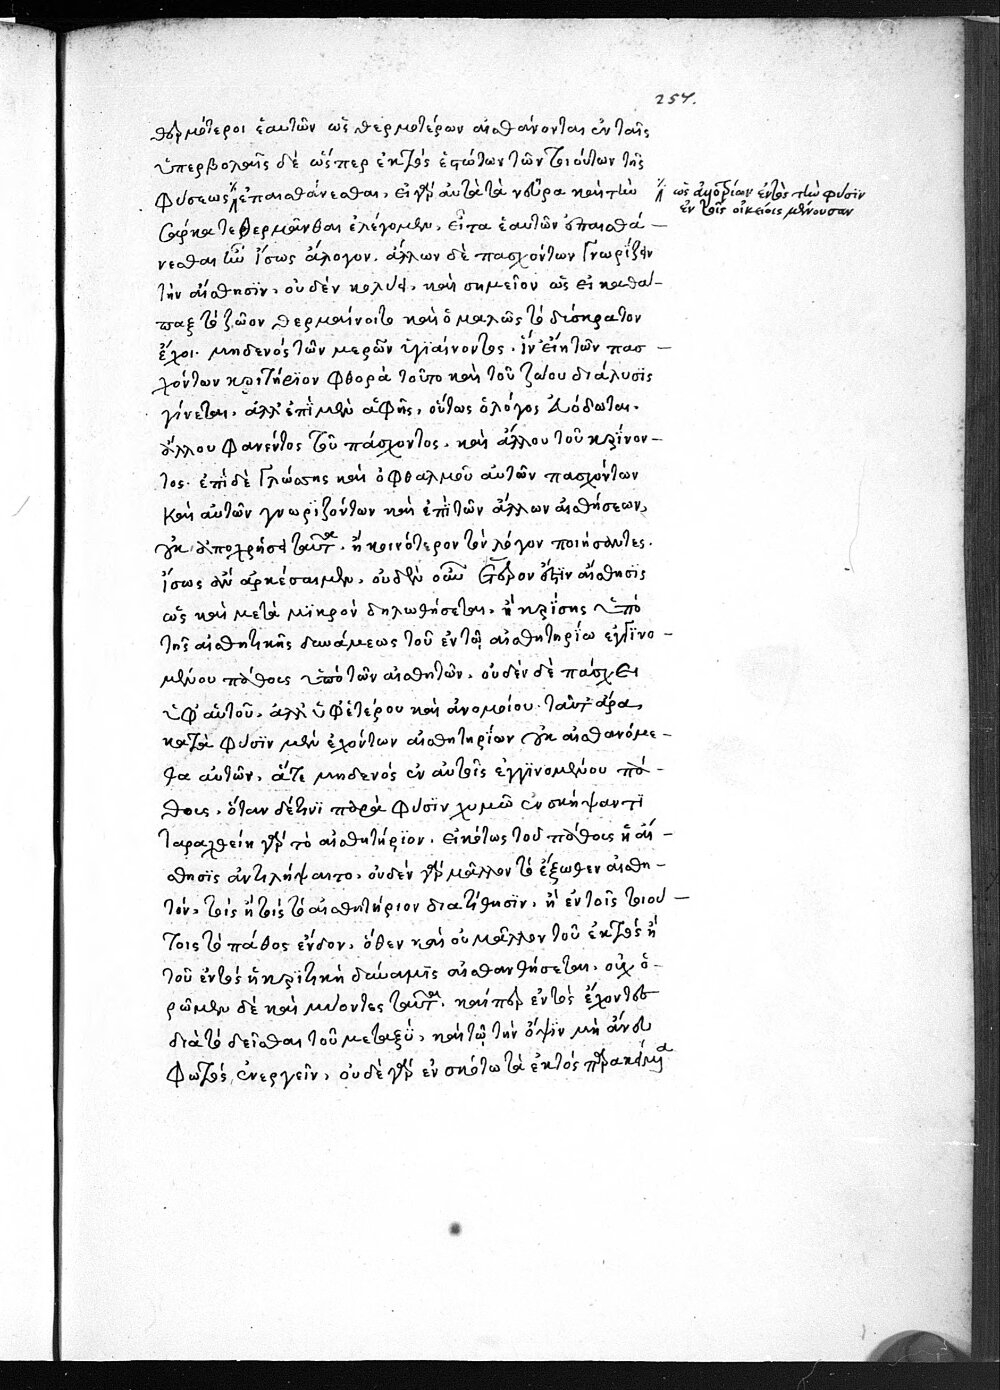 257.
θερμότεροι ἑαυτῶν ὡς θερμοτέρων αἰσθάνονται ἐν ταῖς
ὑπερβολαῖς δὲ ὥσπερ ἐκτὸς ἑστώτων τῶν τοιούτων τῆς
φύσεως ἐπαισθάνεσθαι, εἰ γὰρ αὐτὰ τὰ νεῦρα καὶ τὴν
σάρκα τεθερμάνθαι ἐλέγομεν, εἶτα ἑαυτῶν ἐπαισθά-
νεσθαι ἦν ἴσως ἄλογον. ἄλλων δὲ πασχόντων γνωρίζειν
τὴν αἴσθησϊν, οὐδὲν κωλύει, καὶ σημεῖον ὡς εἰ καθά-
παξ τὸ ζῶον θερμαίνοιτο καὶ ὁμαλῶς τὸ δύσκρατον
ἔχοι. μηδενὸς τῶν μερῶν ὑγϊαίνοντος. ἵν' εἴη τῶν πασ-
χόντων κρϊτήρϊον φθορὰ τοῦτο καὶ τοῦ ζώου διάλυσϊς
γίνεται, ἀλλ' ἐπὶ μὲν ἁφῆς, οὕτως ὁ λόγος ἀποδέδοται.
ἄλλου φανέντος τοῦ πάσχοντος. καὶ ἄλλου τοῦ κρίνον-
τος. ἐπὶ δὲ γλώσσης καὶ ὀφθαλμοῦ αὐτῶν πασχόντων
καὶ αὐτῶν γνωριζόντων καὶ ἐπὶ τῶν ἄλλων αἰσθήσεων,
οὐκ ἀποχρήσει ταῦτα. ἢ κοινότερον τὸν λόγον ποιήσαντες.
ἴσως ἂν ἀρκέσαιμεν, οὐδὲν οὖν ἕτερον ἐστϊν αἴσθησϊς
ὡς καὶ μετὰ μϊκρὸν δηλωθήσεται, ἢ κρίσης ὑπὸ
τῆς αἰσθητικῆς δυνάμεως τοῦ ἐν τῷ αἰσθητηρίω ἐγγϊνο-
μένου πάθους ὑπὸ τῶν αἰσθητῶν, οὐδὲν δὲ πάσχει
ὑφ' αὑτοῦ, ἀλλ' ὑφ' ἑτέρου καὶ ἀνομοίου. ταῦτ' ἄρα,
κατὰ φύσϊν μὲν ἐχόντων αἰσθητηρίων οὐκ αἰσθανόμε-
θα αὐτῶν, ἅτε μηδενὸς ἐν αὐτοῖς ἐγγϊνομένου πά-
θους, ὅταν δέ τϊνϊ παρὰ φύσϊν χυμῶ ἐνσκήψαντϊ
ταραχθείη γὰρ τὸ αἰσθητήρϊον, εἰκότως τοῦ πάθους ἡ αἴ-
σθησϊς ἀντιλήψαιτο, οὐδὲν γὰρ μᾶλλον τὸ ἔξωθεν αἰσθη-
τόν, τοῖς ἢ τοῖς τὸ αἰσθητήριον διατίθησϊν, ἢ ἐν τοῖς τοιού-
τοις τὸ πάθος ἔνδον, ὅθεν καὶ οὐ μᾶλλον τοῦ ἐκτὸς ἢ
τοῦ ἐντὸς ἡ κρϊτικὴ δύναμϊς αἰσθανθήσεται, οὐχ ὁ-
ρῶμεν δὲ καὶ μύοντες ταῦτα, καίπερ ἐντὸς ἔχοντες
διὰ τὸ δεῖσθαι τοῦ μεταξύ, καὶ τῷ τὴν ὄψϊν μὴ ἄνευ
φωτὸς, ἐνεργεῖν, οὐδὲ γὰρ ἐν σκότω τὰ ἐκτὸς παρακείμενα
ἐντὸς τὴν φύσϊν
ἐν τοῖς οἰκείοις μένουσαν